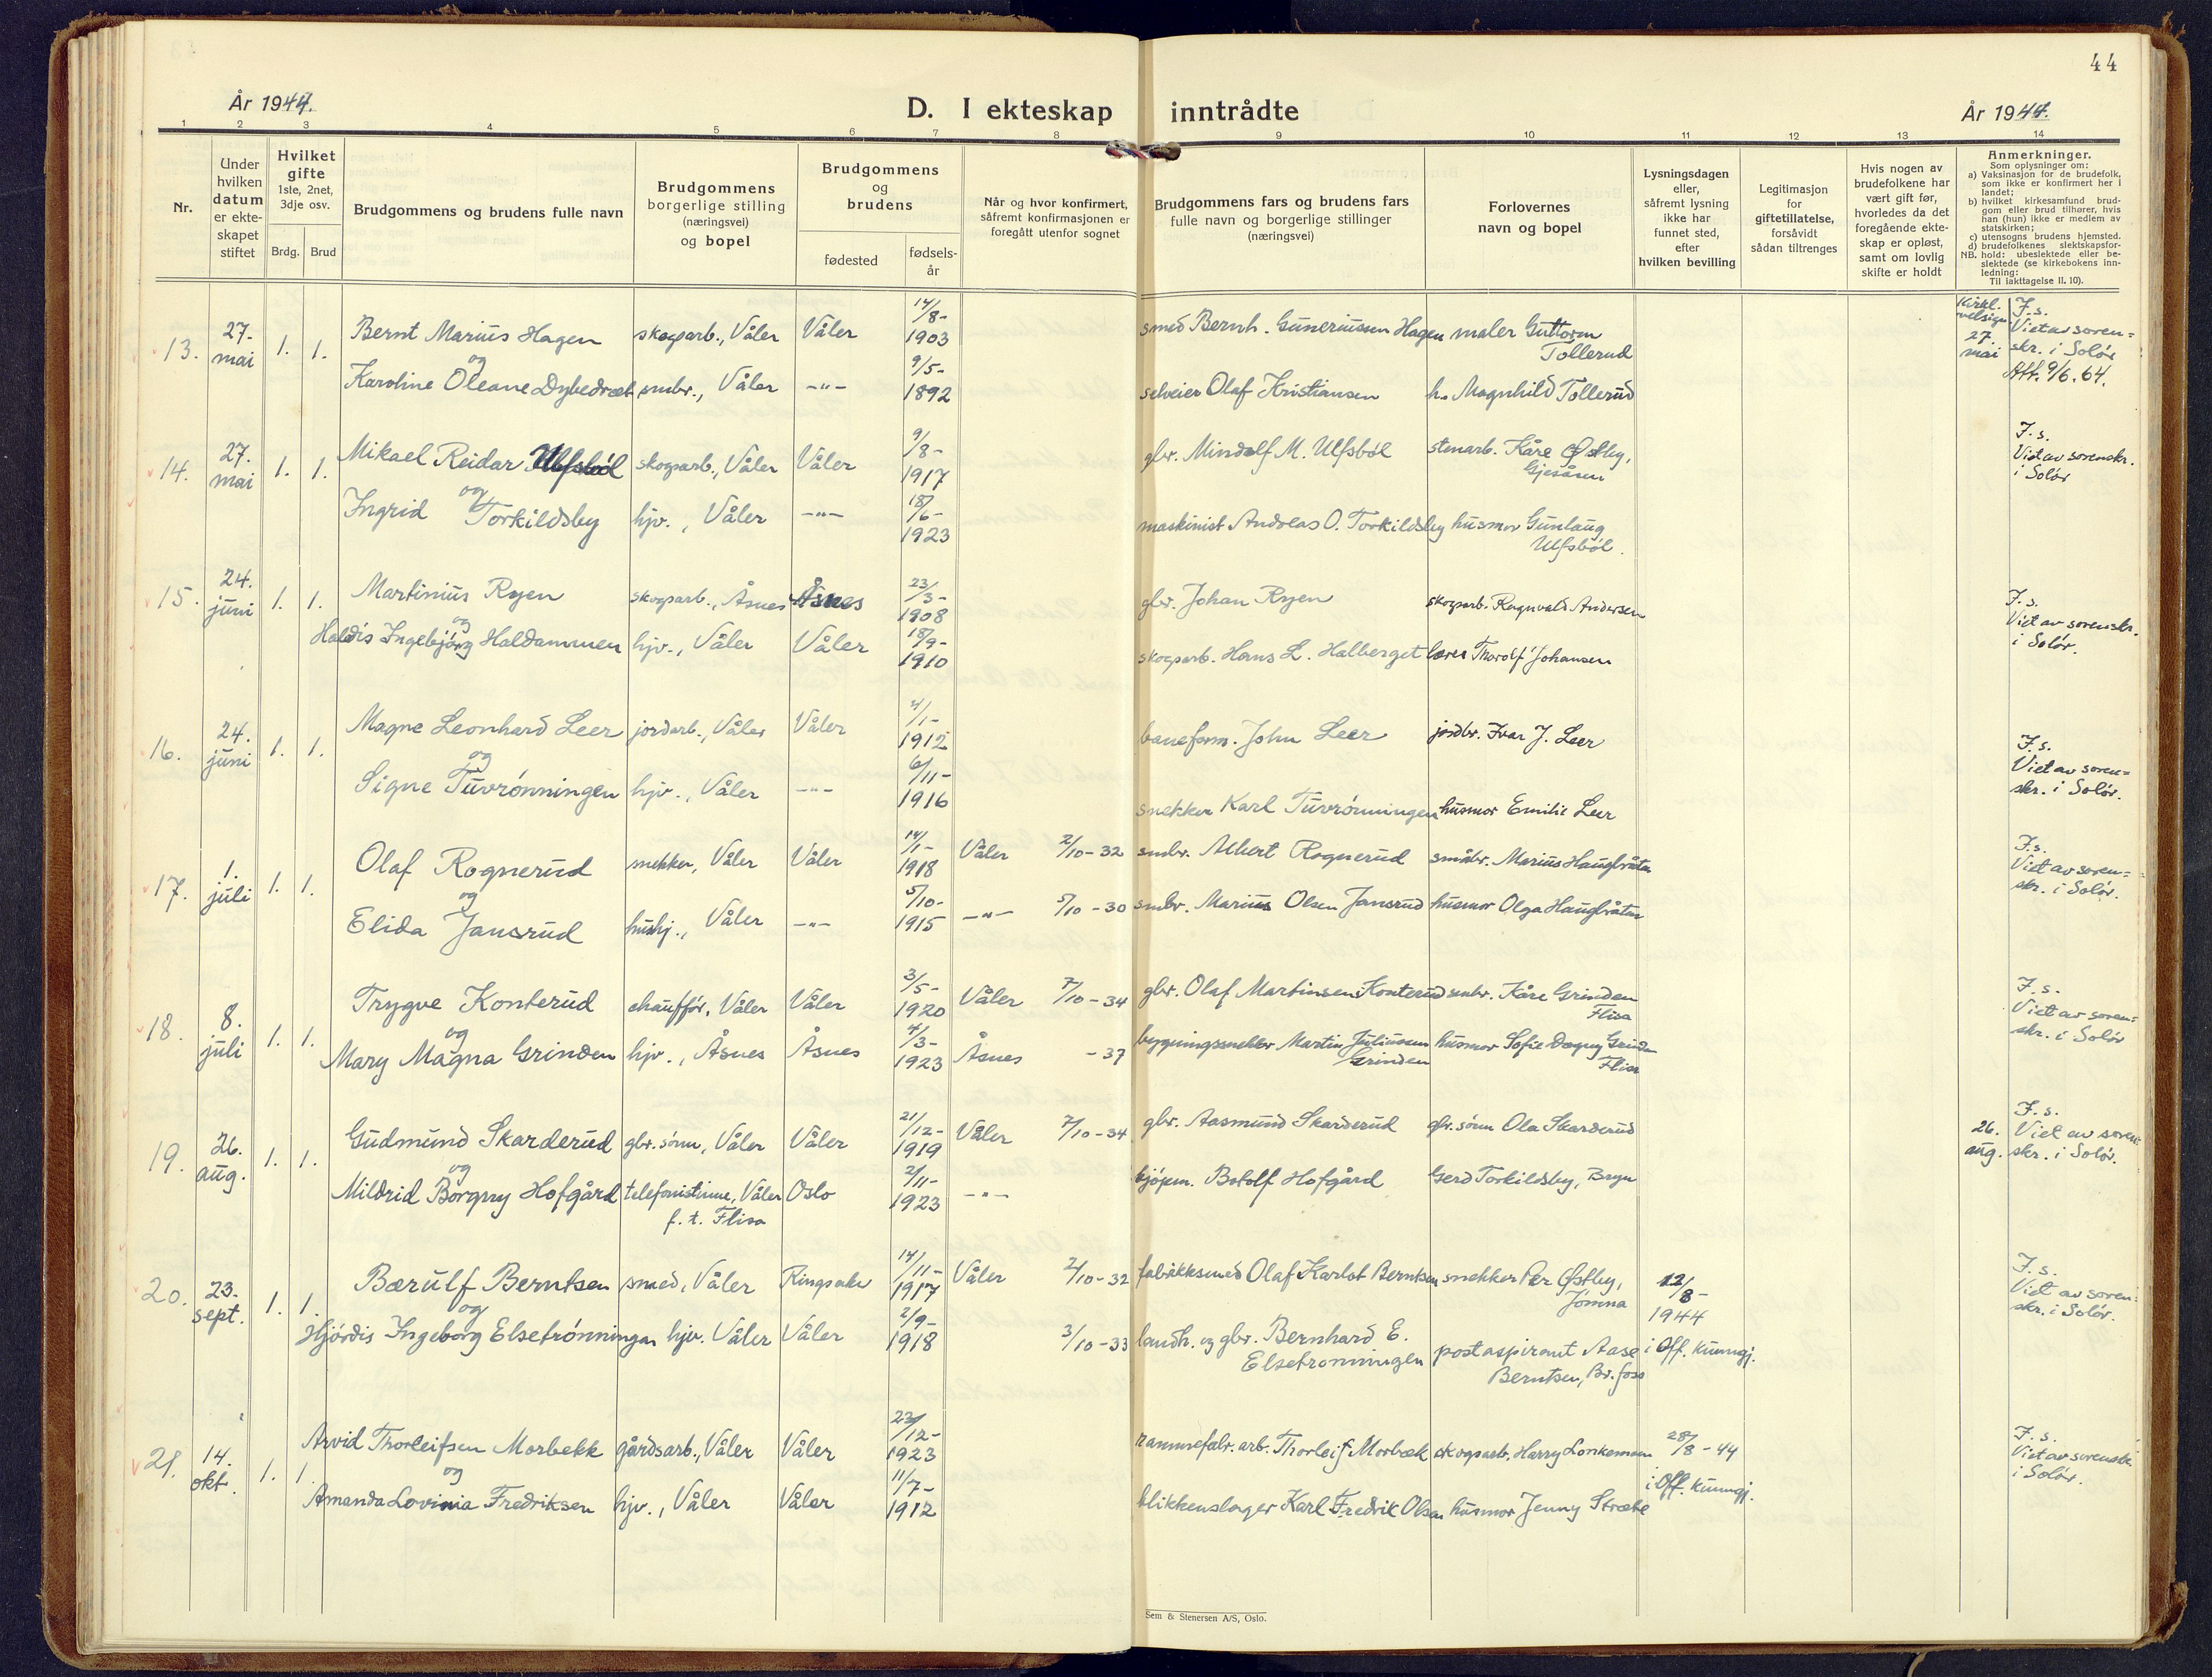 44
År 1944.
D. I ekteskap inntrådte
År 1944.
1 2 3 4 5 6 7 8 9 10 11 12 13 14
Nr.
Under
hvilken
datum
er ekte-
skapet
stiftet
Hvilket
gifte
1ste, 2net,
3dje osv.
Brdg. Brud
Brudgommens og brudens fulle navn
Brudgommens
borgerlige stilling
(næringsvei)
og bopel
Brudgommens
og
brudens
fødested
fødsels-
år
Når og hvor konfirmert,
såfremt konfirmasjonen er
foregått utenfor sognet
Brudgommens fars og brudens fars
fulle navn og borgerlige stillinger
(næringsvei)
Forlovernes
navn og bopel
Lysningsdagen
eller,
såfremt lysning
ikke har
funnet sted,
efter
hvilken bevilling
Legitimasjon
for
giftetillatelse,
forsåvidt
sådan tiltrenges
Hvis nogen av
brudefolkene har
vært gift før,
hvorledes da det
foregående ekte-
skap er opløst,
samt om lovlig
skifte er holdt
Anmerkninger.
Som oplysninger om:
a) Vaksinasjon for de brudefolk,
som ikke er konfirmert her i
landet;
b) hvilket kirkesamfund brud-
gom eller brud tilhører, hvis
han (hun) ikke er medlem av
statskirken;
c) utensogns brudens hjemsted.
d) brudefolkenes slektskapsfor-
hold: ubeslektede eller be-
slektede (se kirkebokens inn-
ledning:
NB. Til iakttagelse II. 10).
13. 27. mai 1. 1. Bernt Marius Hagen skogsarb., Våler Våler 14/8- 1903 smed Bernh. Guneriussen Hagen maler Guttorm Tollerud
Kirkl. velsign. 27. mai
F.s. Viet av soren= skr. i Solør
Att. 9/6. 64.
og
Karoline Oleane Dybedræt smbr., Våler -"- 9/5- 1892 selveier Olaf Kristiansen h. Magnhild Tollerud
14. 27. mai 1. 1. Mikael Reidar Ulfsbøl skogsarb., Våler Våler 9/8- 1917 gbr. Mindolf M. Ulfsbøl stenarb. Kåre Østby, Gjesåsen
F.s. Viet av sorenskr. i Solør
og
Ingrid Torkildsby hjv., Våler -"- 18/6- 1923 maskinist Andreas O. Torkildsby husmor Gunlaug Ulfsbøl.
15. 24. juni 1. 1. Martinius Ryen skogsarb., Åsnes Åsnes 23/3- 1908 gbr. Johan Ryen skogsarb. Ragnvald Andersen
F.s. Viet av sorenskr. i Solør.
og
Haldis Ingebjørg Haldammen hjv., Våler Våler 18/9- 1910 skogsarb. Hans L. Halberget lærer Thorolf Johansen
16. 24. juni 1. 1. Magne Leonhard Leer jordarb., Våler Våler 4/1- 1912 baneform. John Leer jordbr. Ivar J. Leer
F.s. Viet av soren= skr. i Solør.
og
Signe Tuvrønningen hjv., Våler -"- 6/11- 1916 snekker Karl Tuvrønningen husmor Emilie Leer
17. 1. juli 1. 1. Olaf Rognerud snekker, Våler Våler 14/1- 1918 Våler 2/10-32 smbr. Albert Rognerud småbr. Marius Haugbråten
F.s. Viet av soren= skr. i Solør.
og
Elida Jansrud hushj., Våler -"- 5/10- 1915 -"- 5/10-30 smbr. Marius Olsen Jansrud husmor Olga Haugbråten
18. 8. juli 1. 1. Trygve Konterud chauffør, Våler Våler 3/5- 1920 Våler 7/10-34 gbr. Olaf Martinsen Konterud smbr. Kåre Grinden Flisa
F.s. Viet av soren= skr. i Solør
og
Mary Magna Grinden hjv., Åsnes Åsnes 4/3- 1923 Åsnes -37 bygningssnekker Martin Juliussen Grinden husmor Sofie Dagny Grinden Flisa
19. 26. aug. 1. 1. Gudmund Skarderud gbr. sønn, Våler Våler 21/12- 1919 Våler 7/10-34 gbr. Aasmund Skarderud gbr. sønn Ola Skarderud
26. aug.
F.s. Viet av soren= skr. i Solør.
og
Mildrid Borgny Hofgård telefonistinne, Våler f.t. Flisa Oslo 2/11- 1923 -"- kjøpm. Botolf Hofgård Gerd Torkildsby, Bryn
20. 23. sept. 1. 1. Bærulf Berntsen smed, Våler Ringsaker 14/11- 1917 Våler 2/10-32 fabrikksmed Olaf Karlot Berntsen snekker Per Østby, Jømna 12/8- 1944
F.s. Viet av soren= skr. i Solør.
og
Hjørdis Ingeborg Elsetrønningen hjv. Våler Våler 2/9- 1918 3/10-33 landh. og gbr. Bernhard E. Elsetrønningen postaspirant Aase Berntsen, Br.foss i Off. kunngj.
21. 14. okt. 1. 1. Arvid Thorleifsen Morbekk gårdsarb., Våler Våler 23/12- 1923 rammefabr. arb. Thorleif Morbæk skogsarb. Harry Lonkemoen 28/8-44
F.s. Viet av sorenskr. i Solør.
og
Amanda Lovinia Fredriksen hjv., Våler Våler 11/7- 1912 blikkenslager Karl Fredrik Olsen husmor Jenny Stræte i Off. kunngj.
Sem & Stenersen A/S, Oslo.